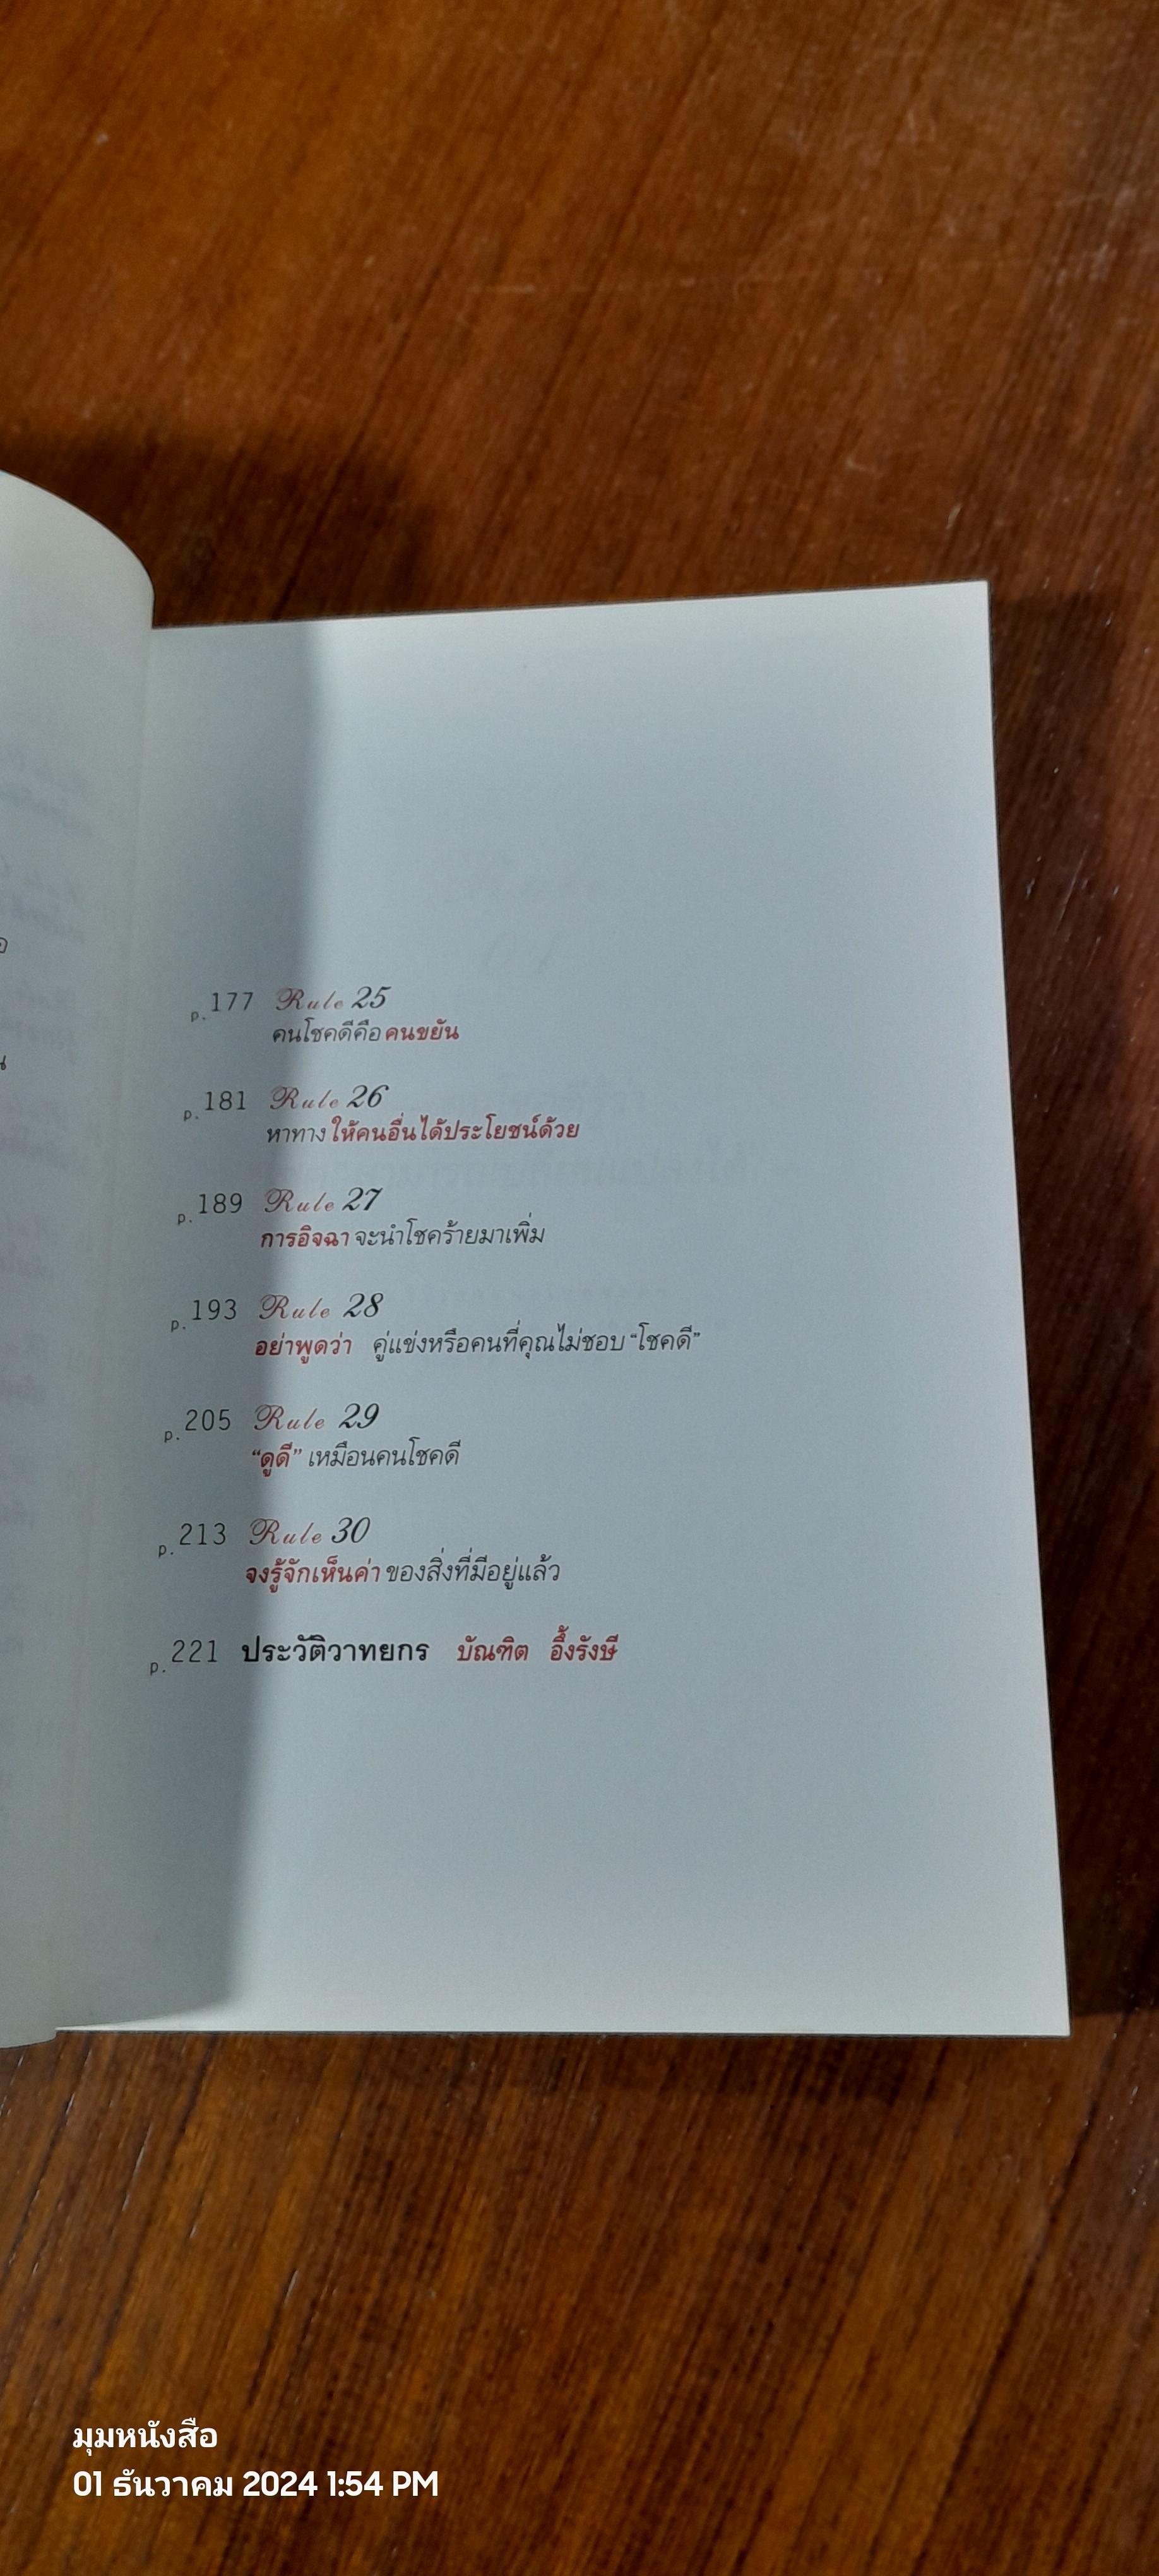 p.177 Rule 25
คนโชคดีคือ คนขยัน
p.181 Rule 26
หาทาง ให้คนอื่นได้ประโยชน์ด้วย
p.189 Rule 27
การอิจฉา จะนำโชคร้ายมาเพิ่ม
p.193 Rule 28
อย่าพูดว่า คู่แข่งหรือคนที่คุณไม่ชอบ “โชคดี”
p.205 Rule 29
“ดูดี” เหมือนคนโชคดี
p.213 Rule 30
จงรู้จักเห็นค่า ของสิ่งที่มีอยู่แล้ว
p.221 ประวัติวาทยกร บัณฑิต อึ้งรังษี
มุมหนังสือ
01 ธันวาคม 2024 1:54 PM